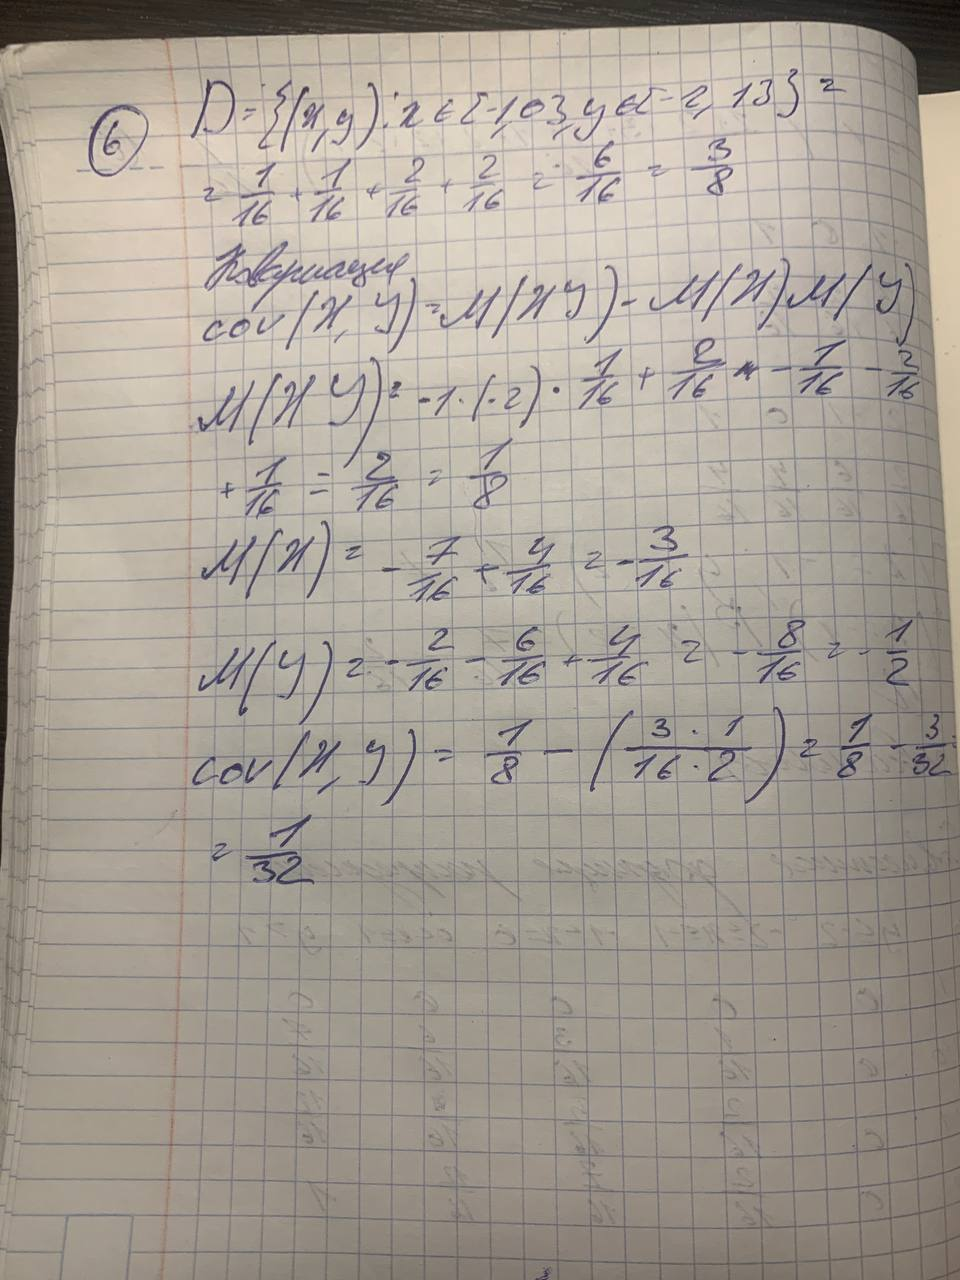 6
D = {(x,y): x ∈ {-1,0}, y ∈ {-2,1}} =
= 1/16 + 1/16 + 2/16 + 2/16 = 6/16 = 3/8
Ковариация
cov(X,Y) = M(XY) - M(X)M(Y)
M(XY) = -1·(-2)·1/16 + 2/16 - 1/16 - 2/16
+ 1/16 = 2/16 = 1/8
M(X) = -7/16 + 4/16 = -3/16
M(Y) = -2/16 - 6/16 + 4/16 = -8/16 = -1/2
cov(X,Y) = 1/8 - (3·1/16·2) = 1/8 - 3/32
= 1/32